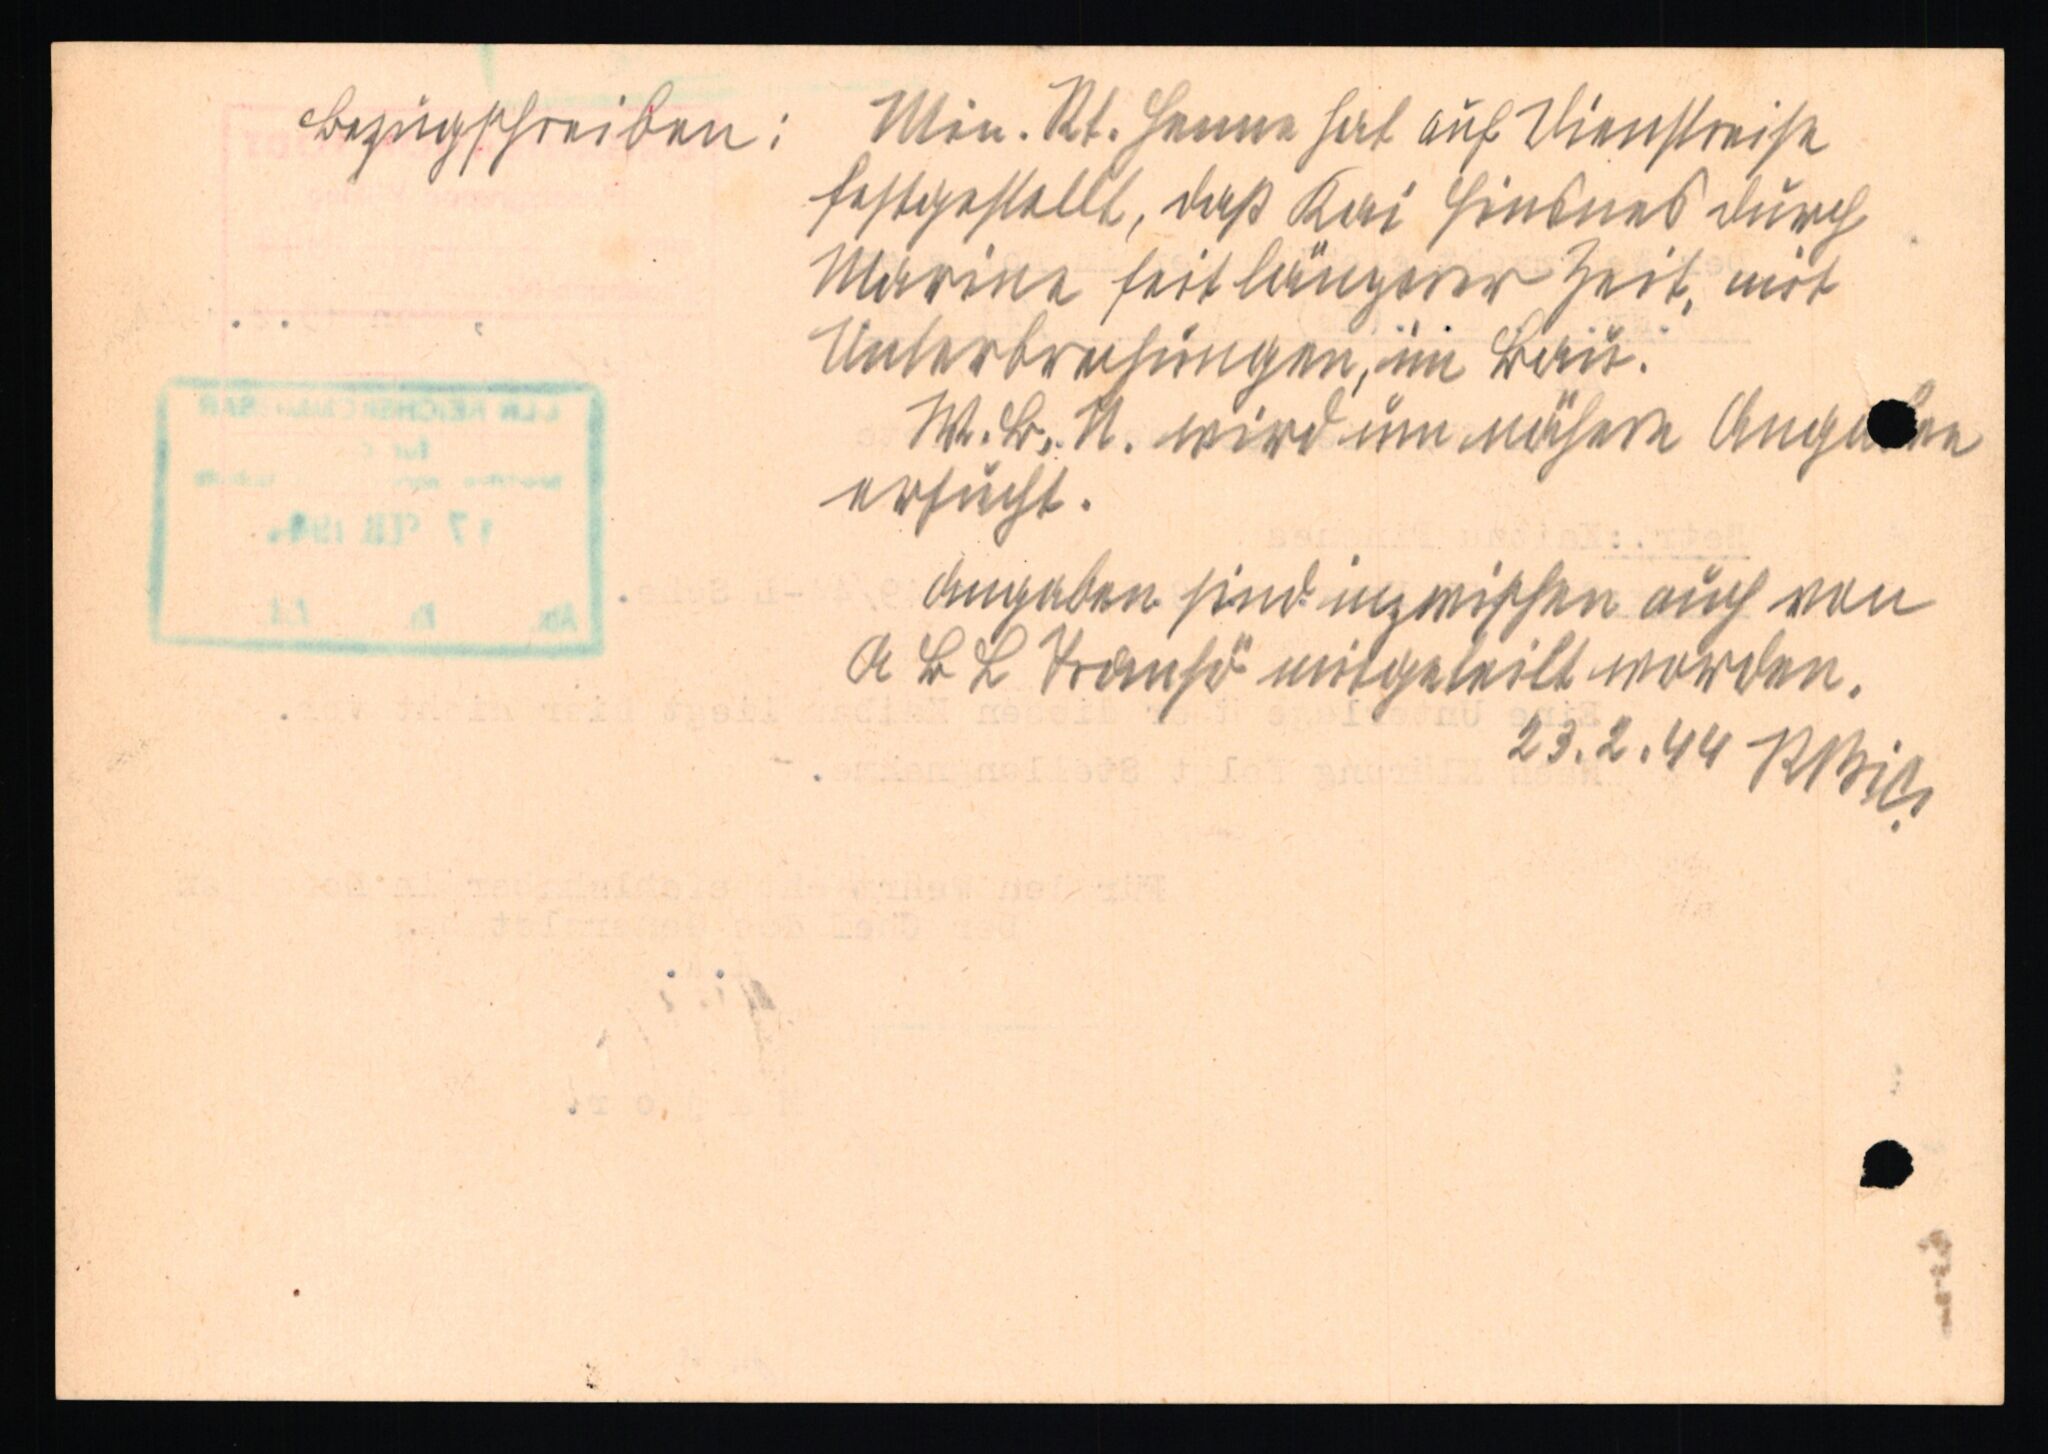 Bezugschreiben: Min. Rt. Henne hat auf Dienstreise
festgestellt, daß Kai Finsnes durch
Marine seit längerer Zeit, mit
Unterbrechungen, im Bau.
W. B. N. wird um nähere Angaben
ersucht.
Angaben sind inzwischen auch von
A B L Tromsö mitgeteilt worden.
23.2.44